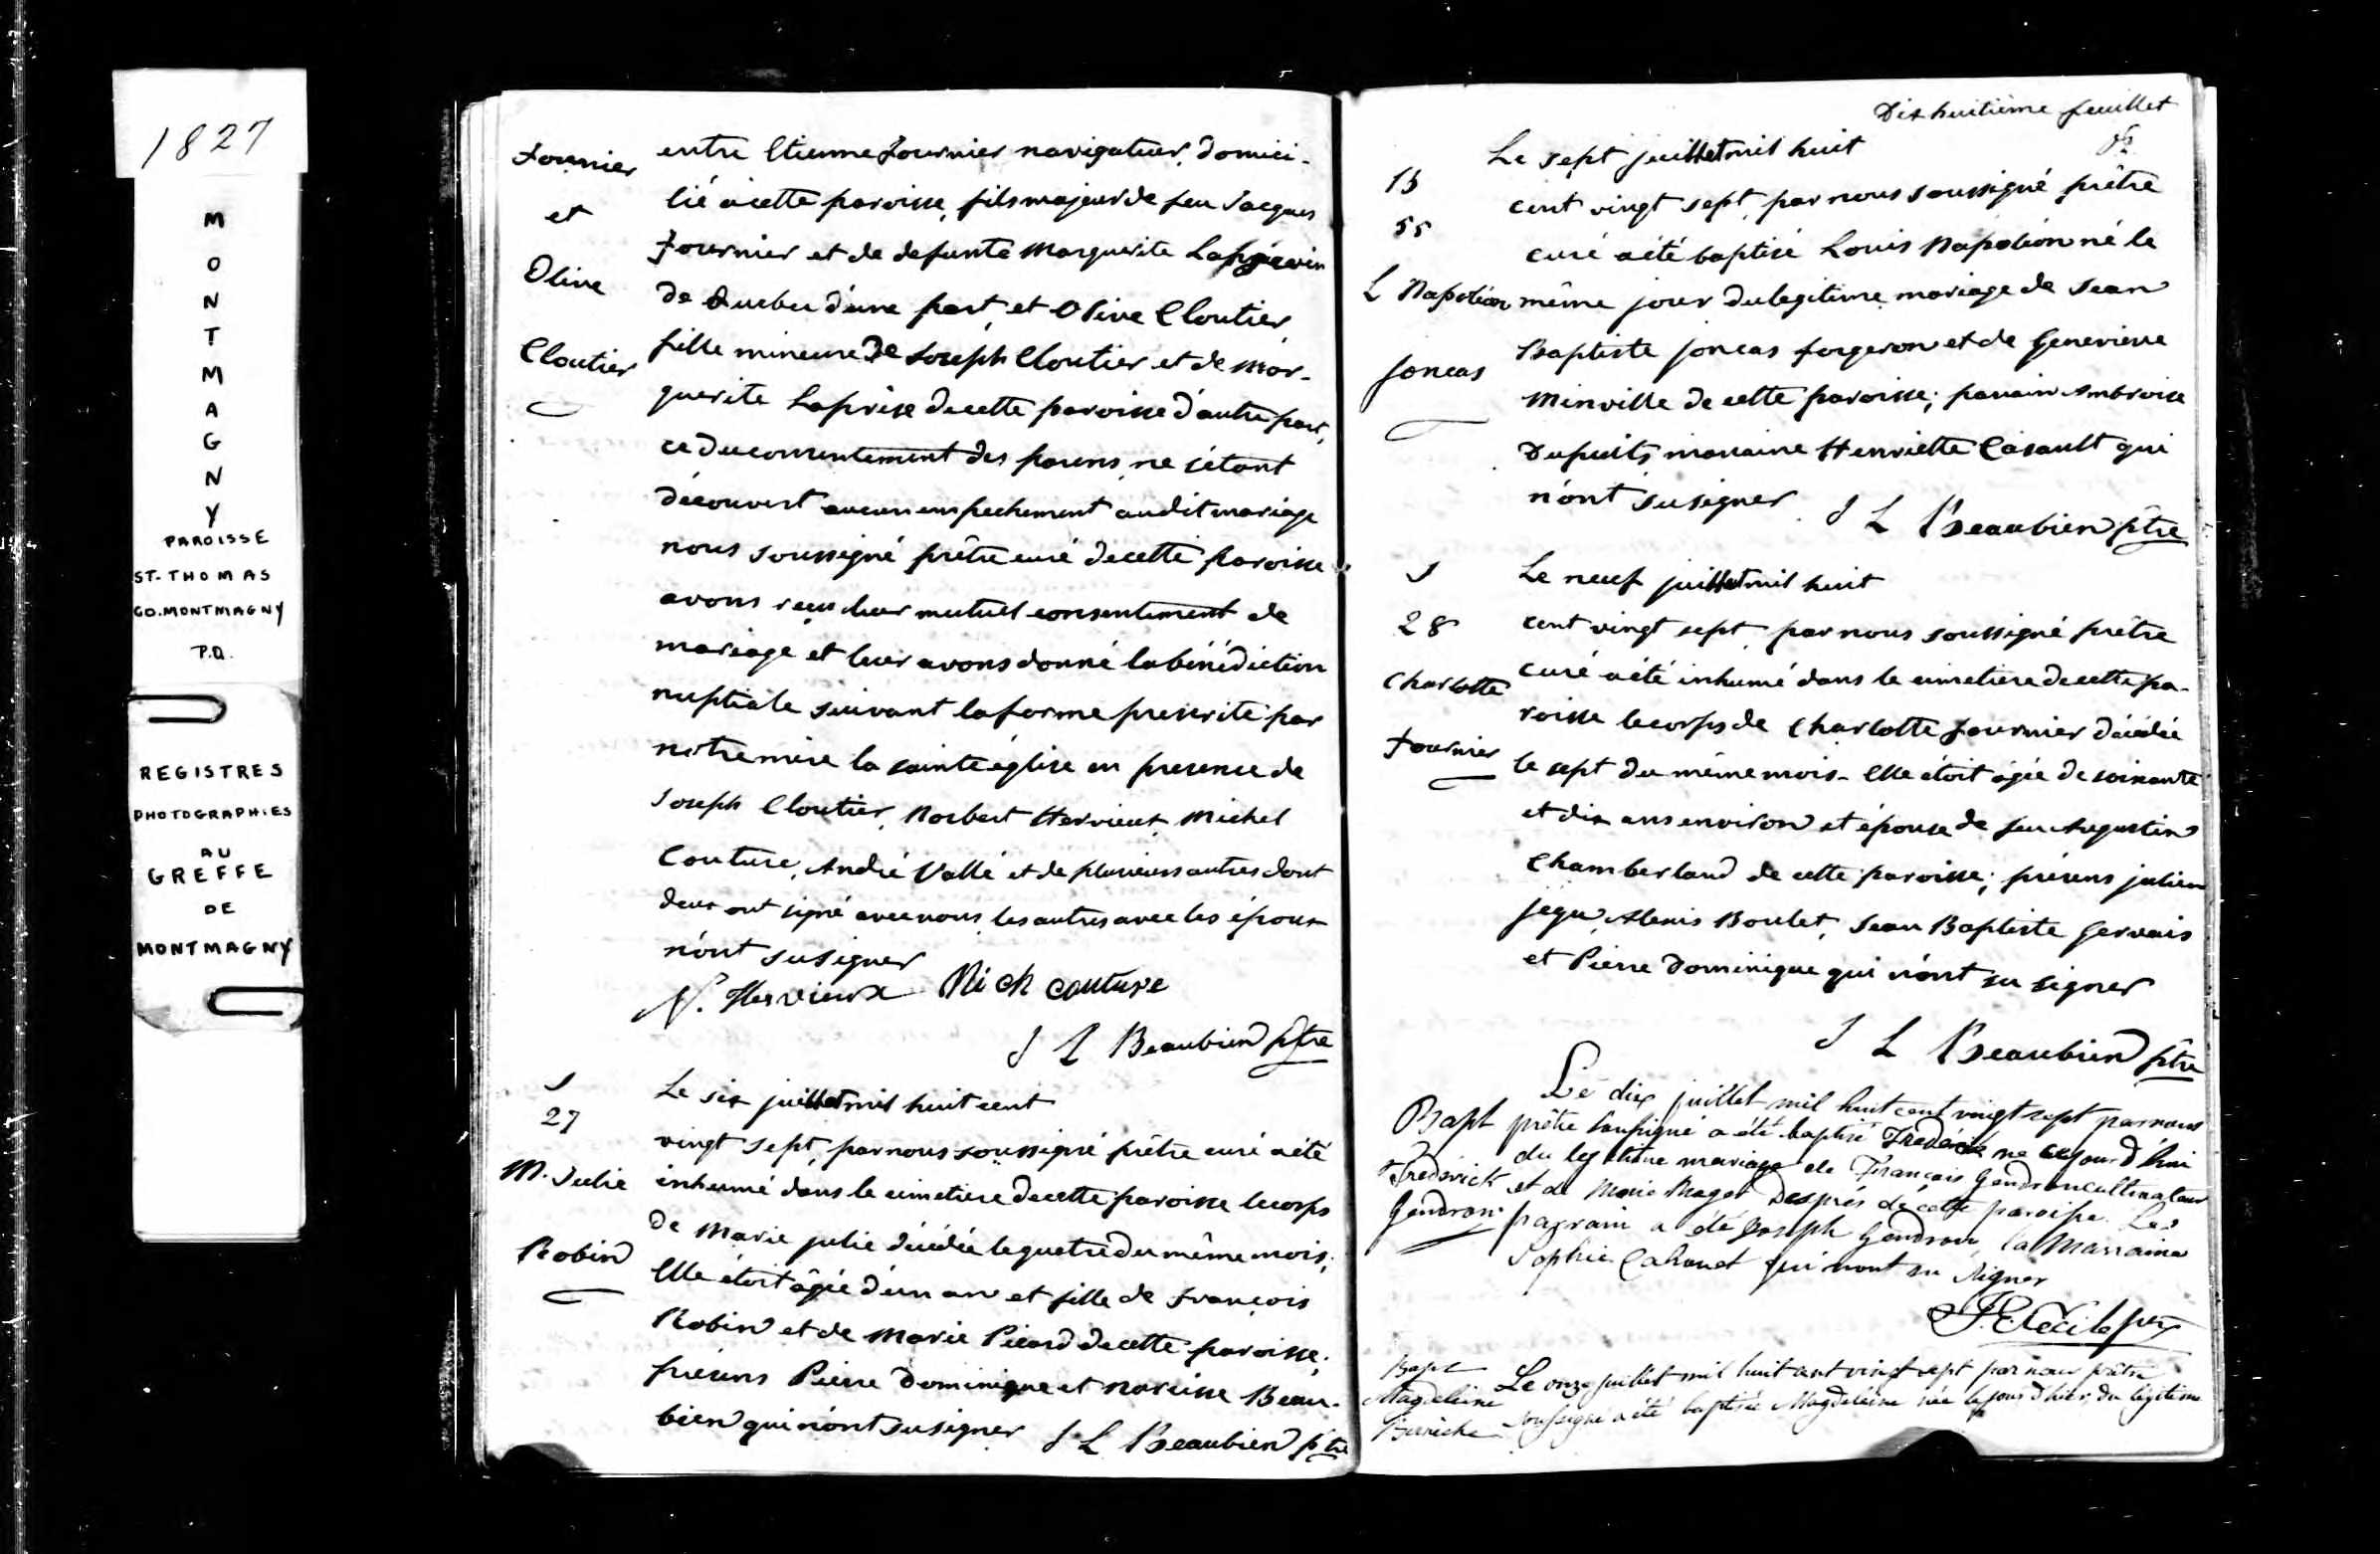 1827
MONTMAGNY
PAROISSE
ST-THOMAS
CO.MONTMAGNY
P.Q.
REGISTRES
PHOTOGRAPHIES
AU
GREFFE
DE
MONTMAGNY
Fournier
et
Olive
Cloutier
entre Etienne Fournier navigateur, domici-
lié à cette paroisse, fils majeur de feu Jacques
Fournier et de defunte Marguerite
de Quebec d'une part, et Olive Cloutier
fille mineure de Joseph Cloutier et de Mar-
guerite Laprise de cette paroisse d'autre part,
ce du consentement des parens, ne s'étant
découvert aucun empechement audit mariage
nous soussigné prêtre curé de cette paroisse
avons reçu leur mutuel consentement de
mariage et leur avons donné la bénédiction
nuptiale suivant la forme prescrite par
notre mère la sainte église en presence de
Joseph Cloutier, Norbert Hervieux, Michel
Couture, André Vallé et de plusieurs autres dont
deux ont signé avec nous, les autres avec les époux
n'ont su signer
N. Hervieux Mich couture
J L Beaubien ptre
S
27
M. Julie
Robin
Le six juillet mil huit cent
vingt sept, par nous soussigné prêtre curé a été
inhumé dans le cimetiere de cette paroisse le corps
de Marie julie décédée le quatre du même mois;
Elle étoit âgée d'un an et fille de François
Robin et de Marie Picard de cette paroisse;
présens Pierre Dominique et Narcisse Beau-
bien qui n'ont su signer J L Beaubien ptre
Dixhuitième feuillet
B
55
L Napoléon
Joncas
Le sept juillet mil huit
cent vingt sept, par nous soussigné prêtre
curé a été baptisé Louis Napoléon né le
même jour du legitime mariage de Jean
Baptiste joncas forgeron et de Genevieve
Minville de cette paroisse; parain Ambroise
Dupuits, maraine Henriette Casault qui
n'ont su signer. J L Beaubien ptre
S
28
Charlotte
Fournier
Le neuf juillet mil huit
cent vingt sept, par nous soussigné prêtre
curé a été inhumé dans le cimetiere de cette pa-
roisse le corps de Charlotte Fournier décédée
le sept du même mois. Elle étoit âgée de soixante
et dix ans environ et épouse de feu Augustin
Chamberland de cette paroisse; présens julien
jegu, Alexis Boulet, Jean Baptiste Gervais
et Pierre Dominique qui n'ont su signer
J L Beaubien ptre
Bapt
Frederick
Gendron
Le dix juillet mil huit cent vingt sept par nous
prêtre soussigné a été baptisé Frederick né ce jourd'hui
du legitime mariage de François Gendron cultivateur
et de Marie Després de cette paroisse. Le
parrain a été Joseph Gendron, la Marraine
Sophie qui n'ont su signer
Bapt
Magdeleine
Le onze juillet mil huit cent vingt sept par nous prêtre
soussigné a été baptisée Magdeleine née le jour d'hier du légitime